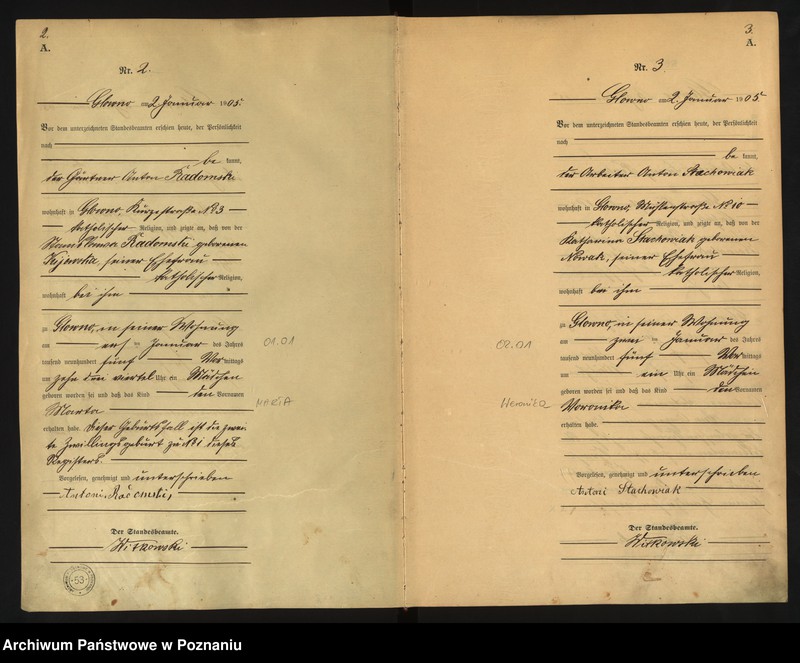 2.
A.
Nr. 2.
Glowno am 2 Januar 1905.
Vor dem unterzeichneten Standesbeamten erschien heute, der Persönlichkeit
nach
be kannt,
der Gärtner Anton Radomski
wohnhaft in Glowno, Kurzestraße No 3
katholischer Religion, und zeigte an, daß von der
Radomski geborenen
Kujawska, seiner Ehefrau
katholischer Religion,
wohnhaft bei ihm
zu Glowno, in seiner Wohnung
am ersten Januar des Jahres
tausend neunhundert fünf Vormittags
um zehn drei viertel Uhr ein Mädchen
geboren worden sei und daß das Kind den Vornamen
Marta
erhalten habe. Dieser Geburtsfall ist die zwei-
te Zwillingsgeburt zu No 1 dieses
Registers.
Vorgelesen, genehmigt und unterschrieben
Antoni Radomski,
Der Standesbeamte.
Witkowski
53
01.01
MARTA
3.
A.
Nr. 3.
Glowno am 2 Januar 1905.
Vor dem unterzeichneten Standesbeamten erschien heute, der Persönlichkeit
nach
be kannt,
der Arbeiter Anton Stachowiak
wohnhaft in Glowno, Mühlenstraße No 10
katholischer Religion, und zeigte an, daß von der
Katharina Stachowiak geborenen
Nowak, seiner Ehefrau
katholischer Religion,
wohnhaft bei ihm
zu Glowno, in seiner Wohnung
am zwei ten Januar des Jahres
tausend neunhundert fünf Vormittags
um ein Uhr ein Mädchen
geboren worden sei und daß das Kind den Vornamen
Weronika
erhalten habe.
Vorgelesen, genehmigt und unterschrieben
Antoni Stachowiak
Der Standesbeamte.
Witkowski
02.01
Weronika
Archiwum Państwowe w Poznaniu